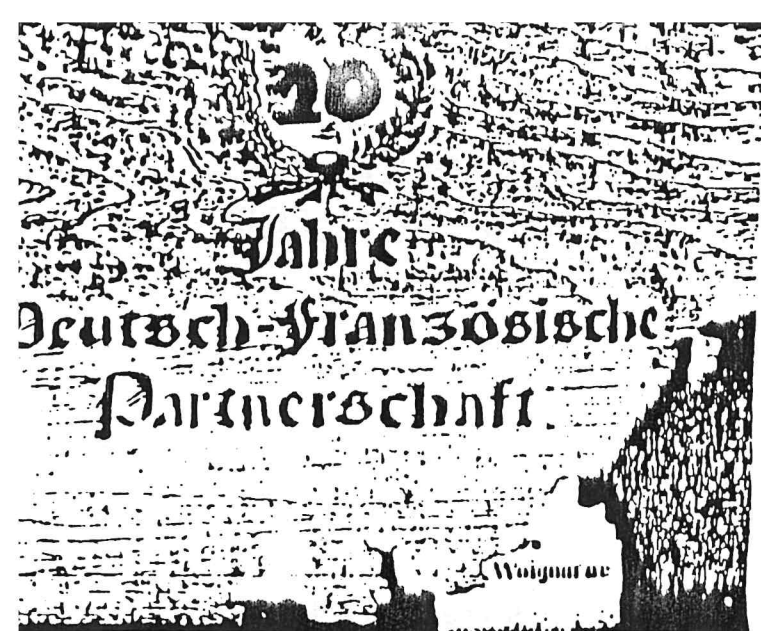 20
Jahre
Deutsch-Französische
Partnerschaft